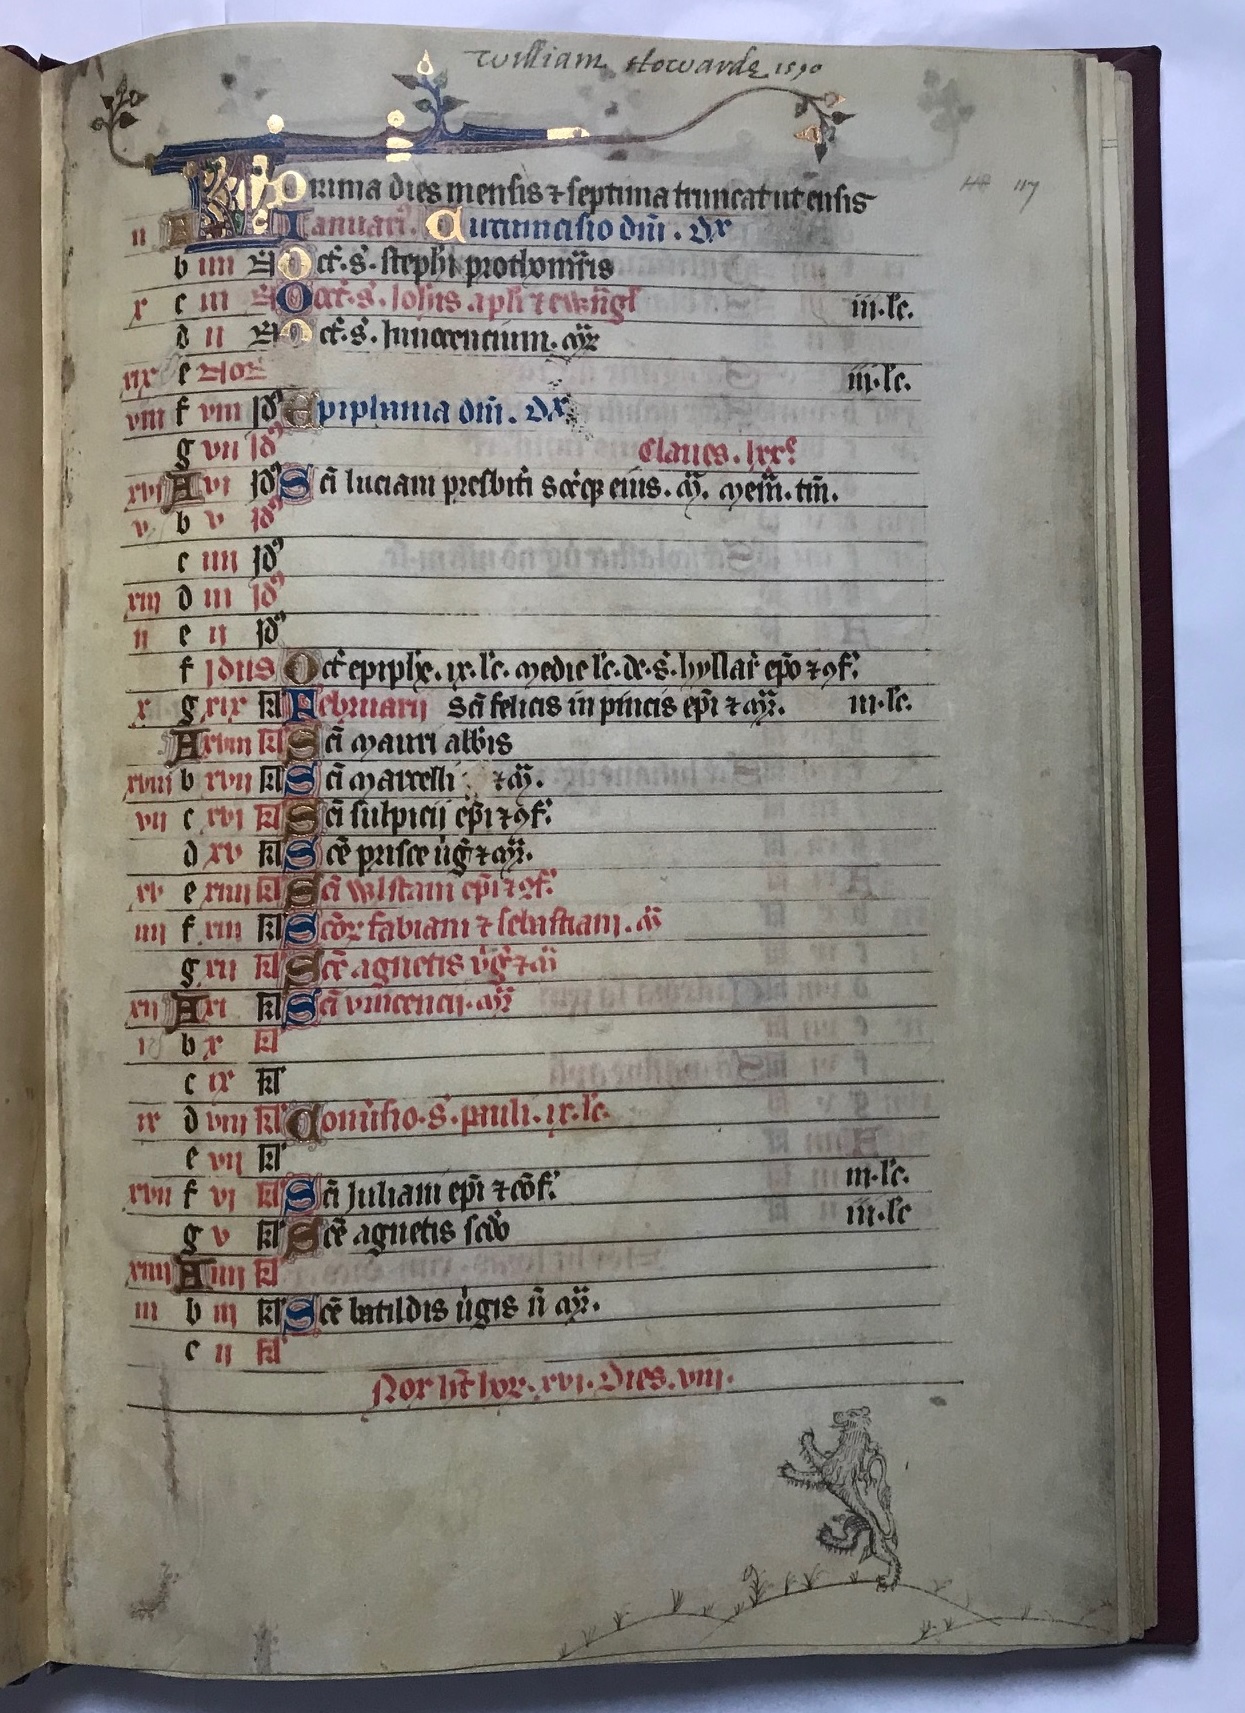 William Howarde 1590
117
KL Prima dies mensis & septima truncat ut ensis
iii A Ianuarii. Circumcisio dñi. Dx
b iiii No Oct. S. Stephi prothomris
xi c iii No Oct. S. Iohis apli & ewngl iii. lc.
d ii No Oct. S. Innocencium. mr
xix e Nos iii. lc.
viii f viii Id Epiphania dñi. Dx
g vii Id Claues. lxx
xvi A vi Id Sci luciani presbiti socrq eius. m. mem. tm.
v b v Id
c iiii Id
xiii d iii Id
ii e ii Id
f Idus Oct epiphie. ix. lc. medie lc. de. S. hyllar epo & cf.
x g xix kl Februarii Sci felicis in pincis epi & mr. iii. lc.
A xviii kl Sci mauri abbis
xviii b xvii kl Sci marcelli & m.
vii c xvi kl Sci sulpicii epi & cf.
d xv kl Sce prisce uirg & mr.
xv e xiiii kl Sci wlstani epi & cf.
iiii f xiii kl Scor fabiani & sebastiani. m
g xii kl Sce agnetis virg & m
xii A xi kl Sci vincencii. mr
i b x kl
c ix kl
ix d viii kl Conuersio. S. pauli. ix. lc.
e vii kl
xvii f vi kl Sci Iuliani epi & cof. iii. lc.
g v kl Sce agnetis scdo iii. lc
xiiii A iiii kl
iii b iii kl Sce batildis uirgis n mr.
c ii kl
Nox ht hor. xvi. Dies. viii.